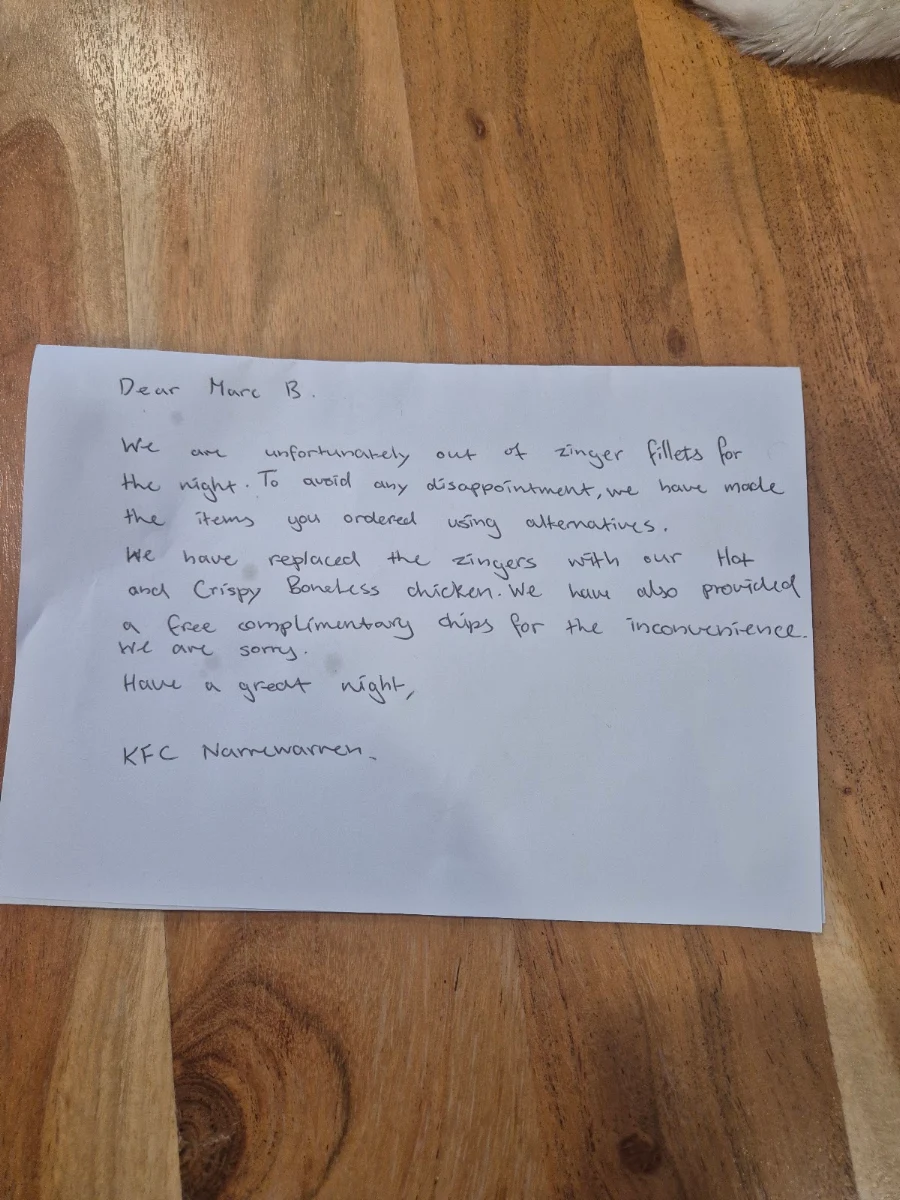 Dear Marc B.
We are unfortunately out of zinger fillets for
the night. To avoid any disappointment, we have made
the items you ordered using alternatives.
We have replaced the zingers with our Hot
and Crispy Boneless chicken. We have also provided
a free complimentary chips for the inconvenience.
We are sorry.
Have a great night,
KFC Narrewarren.